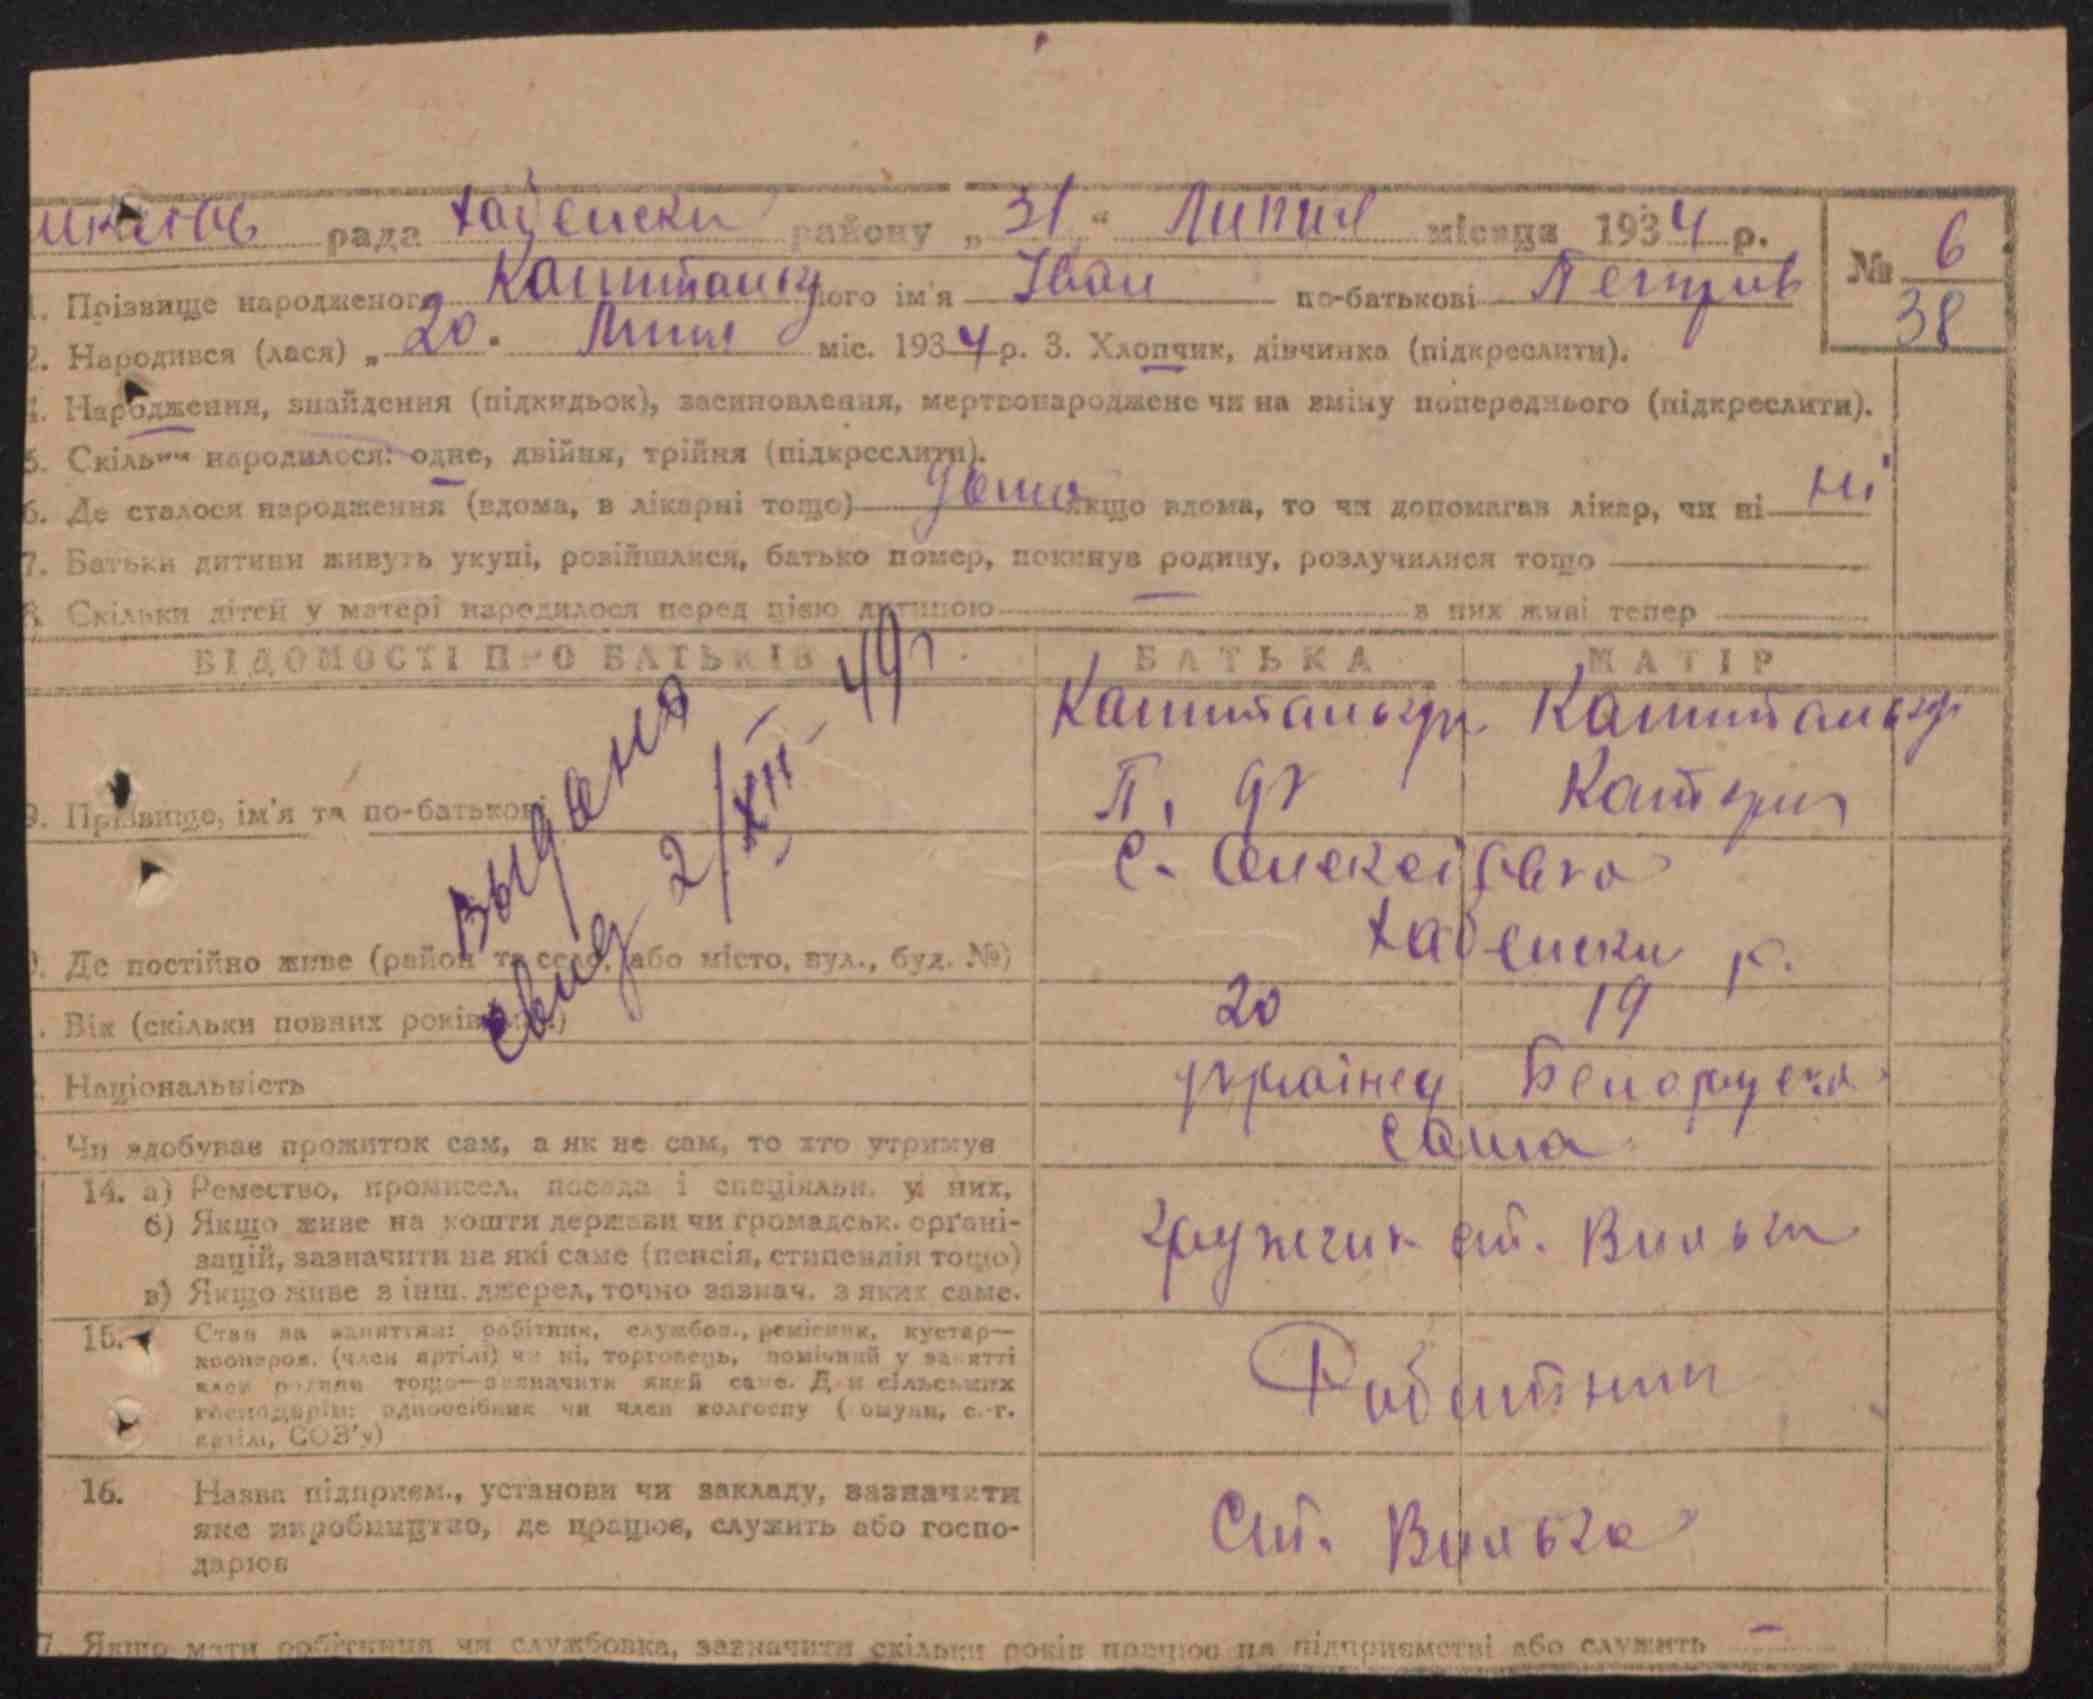 рада Хабенски району „ 31 “ Липня місяця 1934 р.
№ 6
38
1. Прізвище народженого його ім'я Іван по-батькові Петров
2. Народився (лася) „ 20 . Липня міс. 1934 р. 3. Хлопчик, дівчинка (підкреслити).
4. Народження, знайдення (підкидьок), засиновлення, мертвонароджене чи на зміну попереднього (підкреслити).
5. Скільки народилося: одне, двійня, трійня (підкреслити).
6. Де сталося народження (вдома, в лікарні тощо) дома якщо вдома, то чи допомагав лікар, чи ні ні
7. Батьки дитини живуть укупі, розійшлися, батько помер, покинув родину, розлучилися тощо
8. Скільки дітей у матері народилося перед цією дитиною з них живі тепер
ВІДОМОСТІ ПРО БАТЬКІВ БАТЬКА МАТІР
выдано
свид 2/XII - 49 г.
9. Прізвище, ім'я та по-батькові
П.
с.
Хабенски р.
Де постійно живе (район та село, або місто, вул., буд. №)
Вік (скільки повних років) 20 19
Національність українец
Чи здобуває прожиток сам, а як не сам, то хто утримує сама
14. а) Ремество, промисел, посада і спеціяльн. у них,
б) Якщо живе на кошти держави чи громадськ. органі-
зацій, зазначити на які саме (пенсія, стипендія тощо)
в) Якщо живе з інш. джерел, точно зазнач. з яких саме.
гружчик ст.
15. Стан за заняттям: робітник, службов., ремісник, кустар—
кооперов. (член артілі) чи ні, торговець, помічний у занятті
член родини тощо—зазначити який саме. Для сільських
господарів: одноосібник чи член колгоспу (комуни, с.-г.
артілі, СОЗ'у)
Робітник
16. Назва підприєм., установи чи закладу, зазначити
яке виробництво, де працює, служить або госпо-
дарює
Ст.
17. Якщо мати робітниця чи службовка, зазначити скільки років працює на підприємстві або служить —